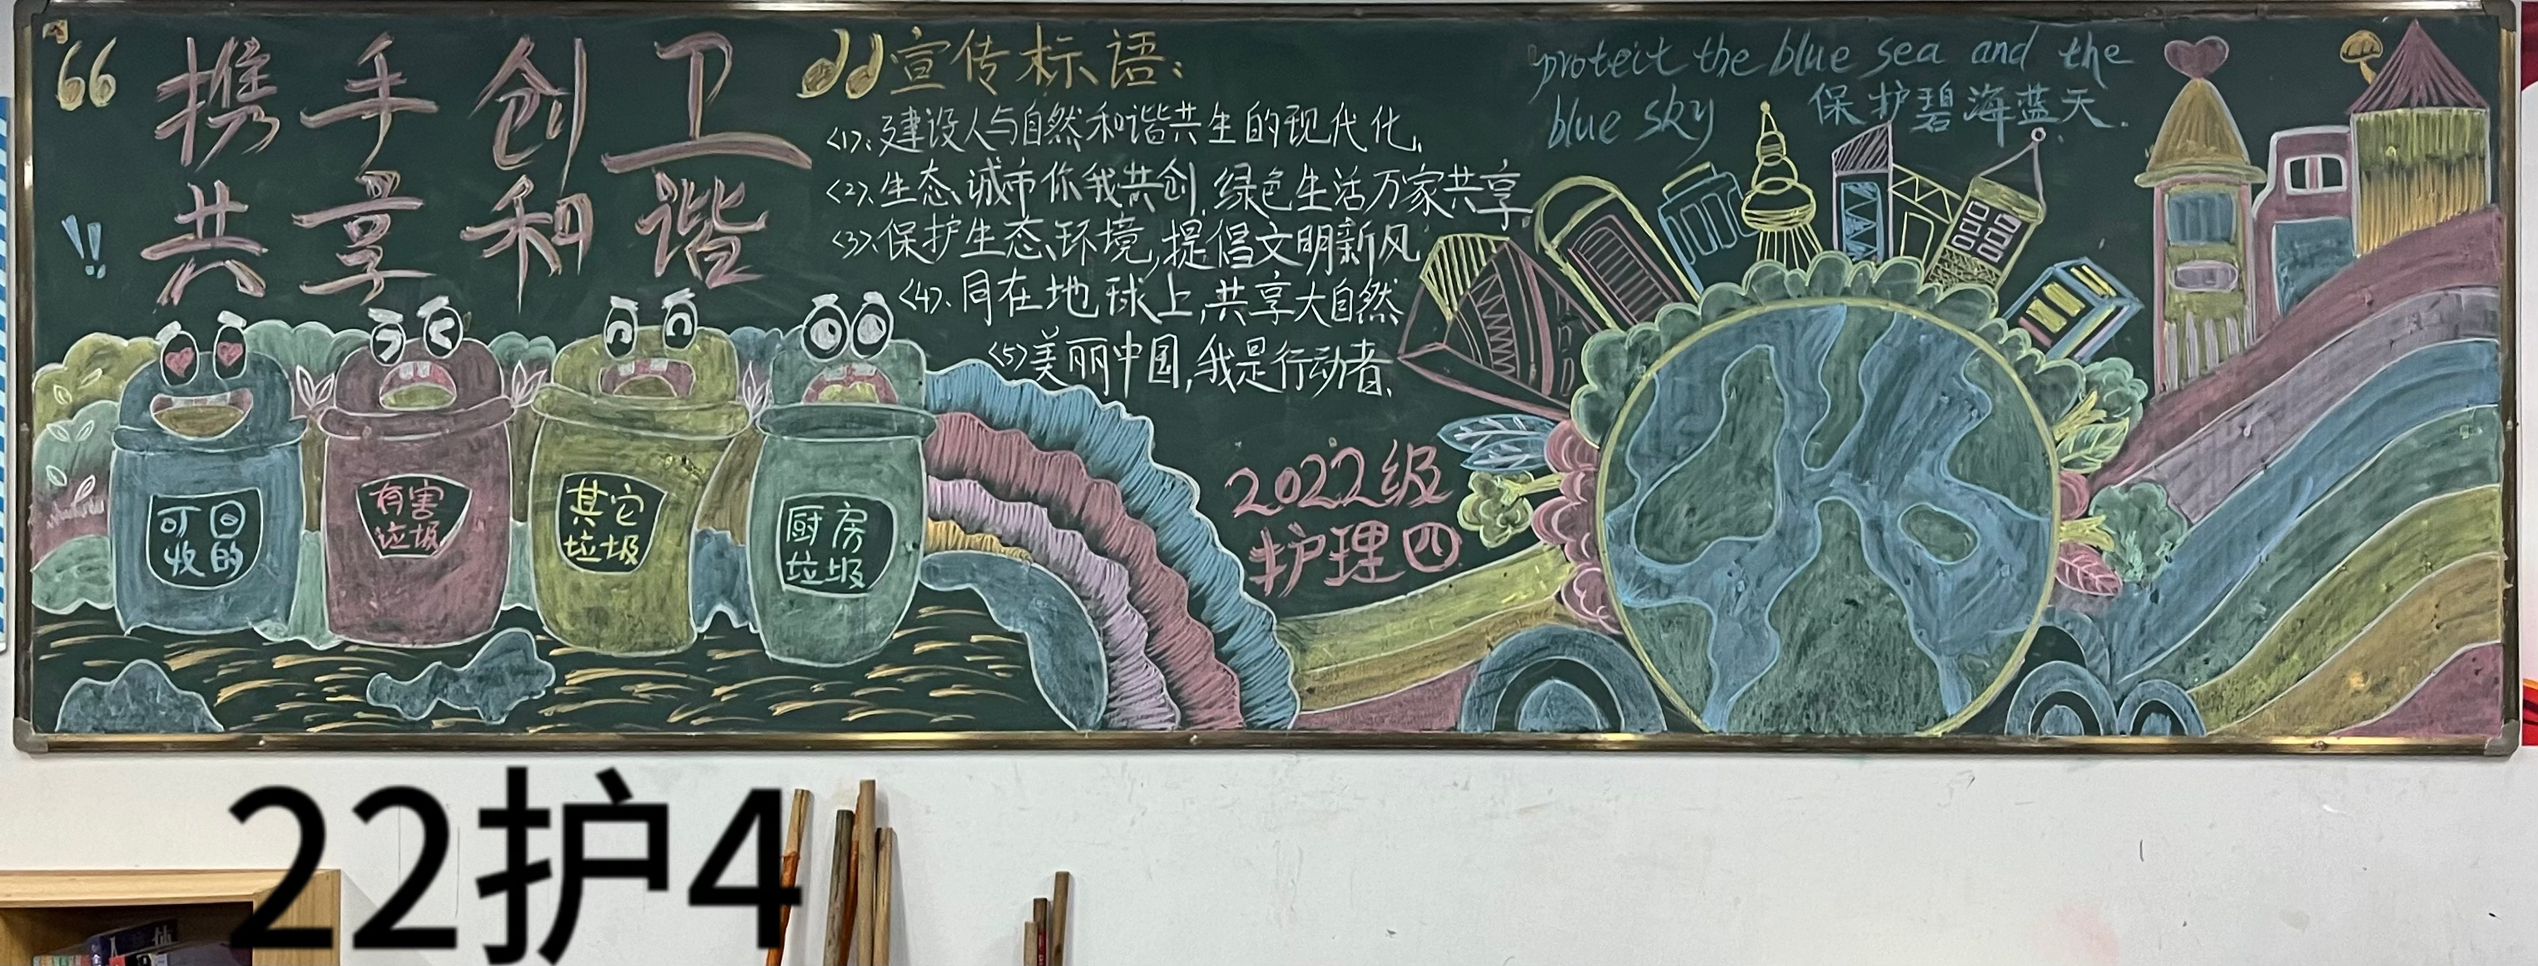 携手创卫
共享和谐
!!
宣传标语:
<1>、建设人与自然和谐共生的现代化.
<2>、生态城市你我共创,绿色生活万家共享
<3>、保护生态环境,提倡文明新风
<4>、同在地球上,共享大自然
<5>美丽中国,我是行动者.
protect the blue sea and the
blue sky
保护碧海蓝天.
可回
收的
有害
垃圾
其它
垃圾
厨房
垃圾
2022级
护理四
22护4